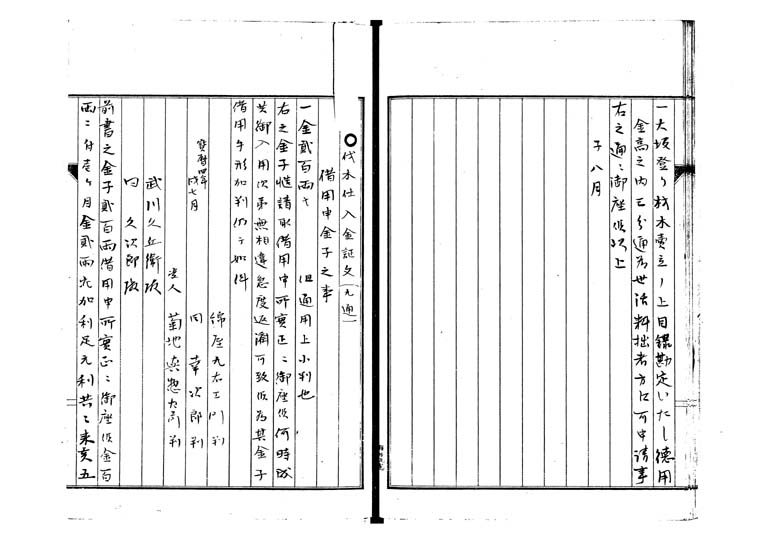 一大坂登り材木売立ノ上目録勘定いたし徳用
金高之内三分通為世話料拙者方江可申請事
右之通ニ御座候以上
子八月
〇伐木仕入金証文（九通）
借用申金子之事
一金貮百両ハ 但通用上小判也
右之金子慥請取借用申所実正ニ御座候何時成
共御入用次第無相違急度返済可致候為其金子
借用手形加判仍而如件
宝暦四年
戌七月
錦屋九右エ門判
同 幸次郎判
證人 菊地與惣右衛門判
武川久兵衛殿
同 久次郎殿
前書之金子貮百両借用申所実正ニ御座候金百
両ニ付壱ヶ月金貮両宛加利足元利共ニ来亥五